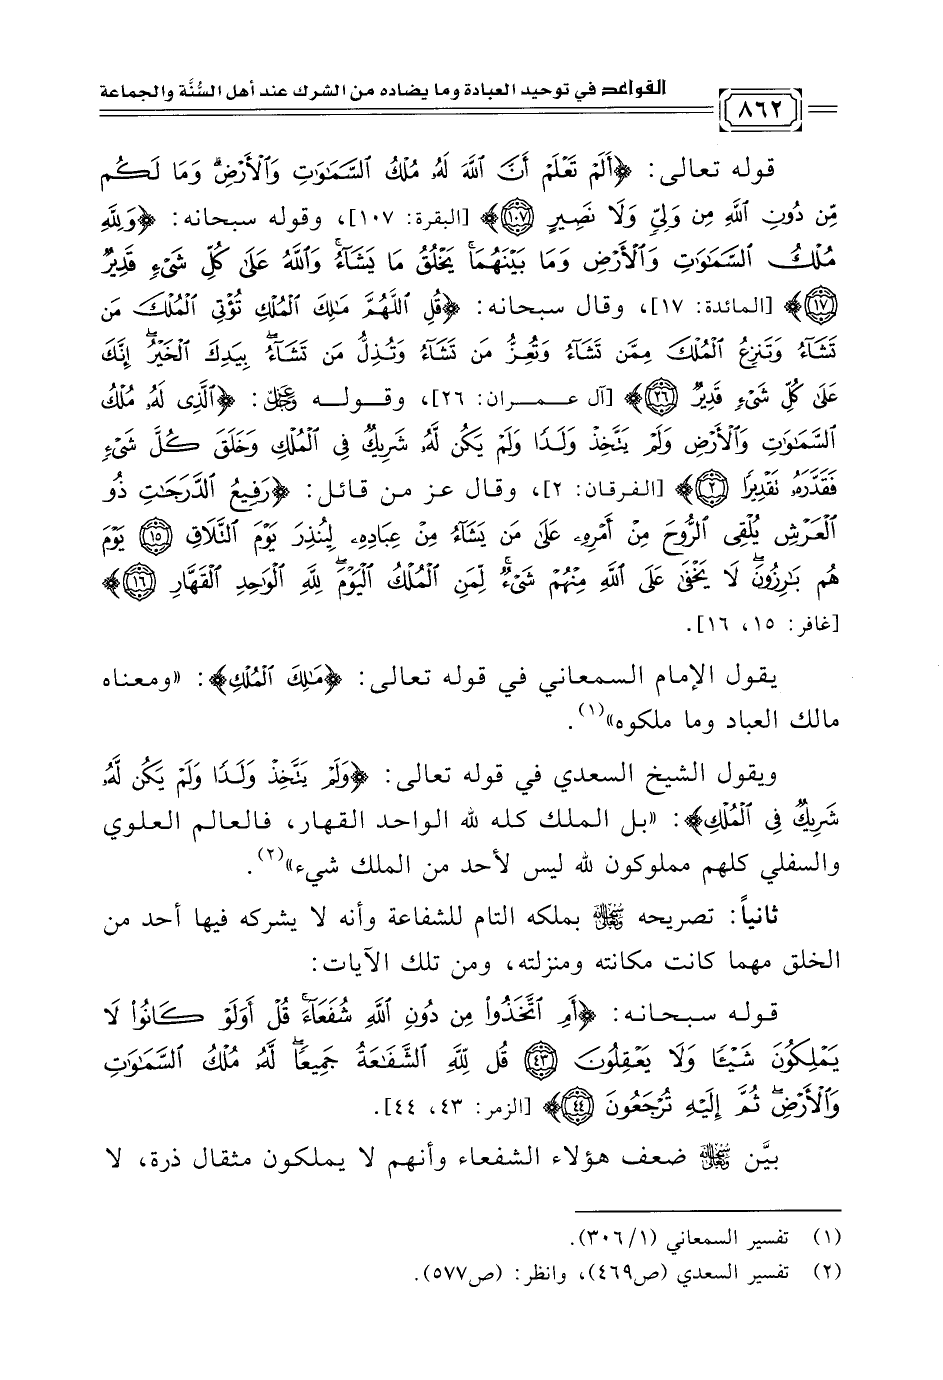 القواعد في توحيد العبادة وما يضاده من الشرك عند أهل السُّنَّة والجماعة
٨٦٢
قوله تعالى: ﴿أَلَمْ تَعْلَمْ أَنَّ ٱللَّهَ لَهُۥ مُلْكُ ٱلسَّمَٰوَٰتِ وَٱلْأَرْضِۗ وَمَا لَكُم
مِّن دُونِ ٱللَّهِ مِن وَلِيٍّ وَلَا نَصِيرٍ ١٠٧﴾ [البقرة: ١٠٧]، وقوله سبحانه: ﴿وَلِلَّهِ
مُلْكُ ٱلسَّمَٰوَٰتِ وَٱلْأَرْضِ وَمَا بَيْنَهُمَاۚ يَخْلُقُ مَا يَشَآءُۚ وَٱللَّهُ عَلَىٰ كُلِّ شَىْءٍ قَدِيرٌ
١٧﴾ [المائدة: ١٧]، وقال سبحانه: ﴿قُلِ ٱللَّهُمَّ مَٰلِكَ ٱلْمُلْكِ تُؤْتِى ٱلْمُلْكَ مَن
تَشَآءُ وَتَنزِعُ ٱلْمُلْكَ مِمَّن تَشَآءُ وَتُعِزُّ مَن تَشَآءُ وَتُذِلُّ مَن تَشَآءُۖ بِيَدِكَ ٱلْخَيْرُۖ إِنَّكَ
عَلَىٰ كُلِّ شَىْءٍ قَدِيرٌ ٢٦﴾ [آل عمران: ٢٦]، وقوله ﷻ: ﴿ٱلَّذِى لَهُۥ مُلْكُ
ٱلسَّمَٰوَٰتِ وَٱلْأَرْضِ وَلَمْ يَتَّخِذْ وَلَدًا وَلَمْ يَكُن لَّهُۥ شَرِيكٌ فِى ٱلْمُلْكِ وَخَلَقَ كُلَّ شَىْءٍ
فَقَدَّرَهُۥ تَقْدِيرًا ٢﴾ [الفرقان: ٢]، وقال عز من قائل: ﴿رَفِيعُ ٱلدَّرَجَٰتِ ذُو
ٱلْعَرْشِ يُلْقِى ٱلرُّوحَ مِنْ أَمْرِهِۦ عَلَىٰ مَن يَشَآءُ مِنْ عِبَادِهِۦ لِيُنذِرَ يَوْمَ ٱلتَّلَاقِ ١٥ يَوْمَ
هُم بَٰرِزُونَۖ لَا يَخْفَىٰ عَلَى ٱللَّهِ مِنْهُمْ شَىْءٌۚ لِّمَنِ ٱلْمُلْكُ ٱلْيَوْمَۖ لِلَّهِ ٱلْوَٰحِدِ ٱلْقَهَّارِ ١٦﴾
[غافر: ١٥، ١٦].
يقول الإمام السمعاني في قوله تعالى: ﴿مَٰلِكَ ٱلْمُلْكِ﴾: «ومعناه
مالك العباد وما ملكوه»(١).
ويقول الشيخ السعدي في قوله تعالى: ﴿وَلَمْ يَتَّخِذْ وَلَدًا وَلَمْ يَكُن لَّهُۥ
شَرِيكٌ فِى ٱلْمُلْكِ﴾: «بل الملك كله لله الواحد القهار، فالعالم العلوي
والسفلي كلهم مملوكون لله ليس لأحد من الملك شيء»(٢).
ثانياً: تصريحه سبحانه وتعالى بملكه التام للشفاعة وأنه لا يشركه فيها أحد من
الخلق مهما كانت مكانته ومنزلته، ومن تلك الآيات:
قوله سبحانه: ﴿أَمِ ٱتَّخَذُوا۟ مِن دُونِ ٱللَّهِ شُفَعَآءَۚ قُلْ أَوَلَوْ كَانُوا۟ لَا
يَمْلِكُونَ شَيْـًٔا وَلَا يَعْقِلُونَ ٤٣ قُل لِّلَّهِ ٱلشَّفَٰعَةُ جَمِيعًاۖ لَّهُۥ مُلْكُ ٱلسَّمَٰوَٰتِ
وَٱلْأَرْضِۖ ثُمَّ إِلَيْهِ تُرْجَعُونَ ٤٤﴾ [الزمر: ٤٣، ٤٤].
بيَّن سبحانه وتعالى ضعف هؤلاء الشفعاء وأنهم لا يملكون مثقال ذرة، لا
(١) تفسير السمعاني (٣٠٦/١).
(٢) تفسير السعدي (ص٤٦٩)، وانظر: (ص٥٧٧).